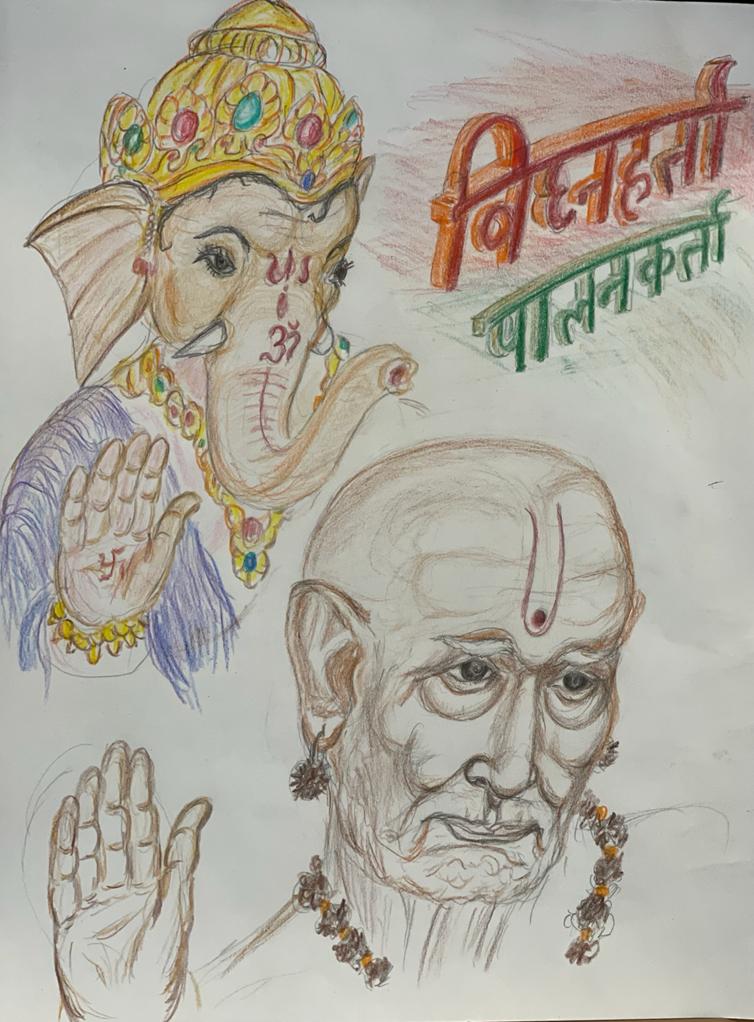 विघ्नहर्ता
पालनकर्ता
ॐ